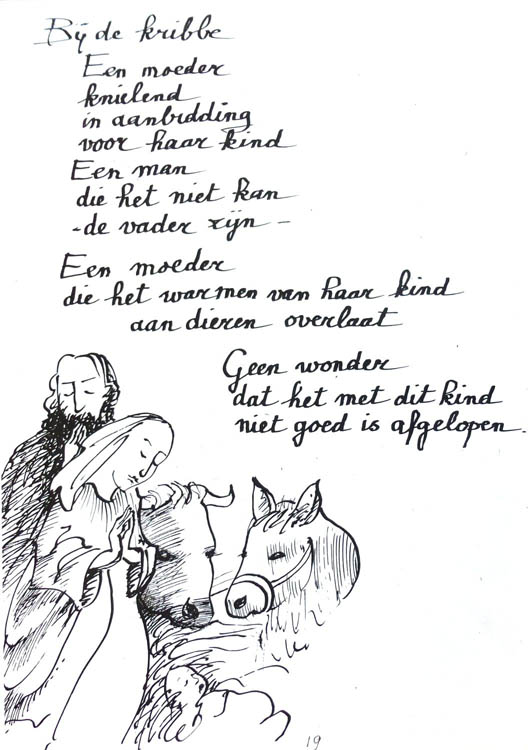 Bij de kribbe
Een moeder
knielend
in aanbidding
voor haar kind
Een man
die het niet kan
- de vader zijn -
Een moeder
die het warmen van haar kind
aan dieren overlaat
Geen wonder
dat het met dit kind
niet goed is afgelopen.
19